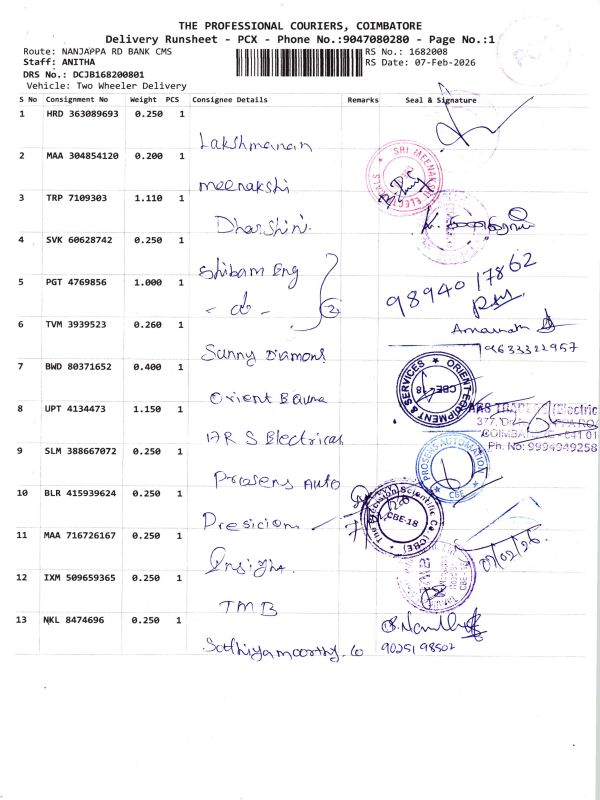 THE PROFESSIONAL COURIERS, COIMBATORE
Delivery Runsheet - PCX - Phone No.:9047080280 - Page No.:1
Route: NANJAPPA RD BANK CMS
RS No.: 1682008
Staff: ANITHA
RS Date: 07-Feb-2026
DRS No.: DCJB168200801
Vehicle: Two Wheeler Delivery
S No Consignment No Weight PCS Consignee Details Remarks Seal & Signature
1 HRD 363089693 0.250 1 Lakshmanan
2 MAA 304854120 0.200 1 meenakshi
SRI MEENAKSHI ELECTRICALS
3 TRP 7109303 1.110 1 Dharshini
4 SVK 60628742 0.250 1 Shibam Eng
5 PGT 4769856 1.000 1 - do - 2
98940 17862
6 TVM 3939523 0.260 1 Sunny Diamons
9633322957
7 BWD 80371652 0.400 1 Orient
ORIENT EQUIPMENT & SERVICES CBE-18
8 UPT 4134473 1.150 1 A R S Electrical
Ph. No: 9994949258
9 SLM 388667072 0.250 1 Prosens Auto
PROSENS AUTOMATION CBE
10 BLR 415939624 0.250 1 Presicion
The Precision Scientific Co (CBE) CBE-18
11 MAA 716726167 0.250 1
07/02/26.
12 IXM 509659365 0.250 1 TMB
13 NKL 8474696 0.250 1 Sathiyamoorthy. Co
9025198502